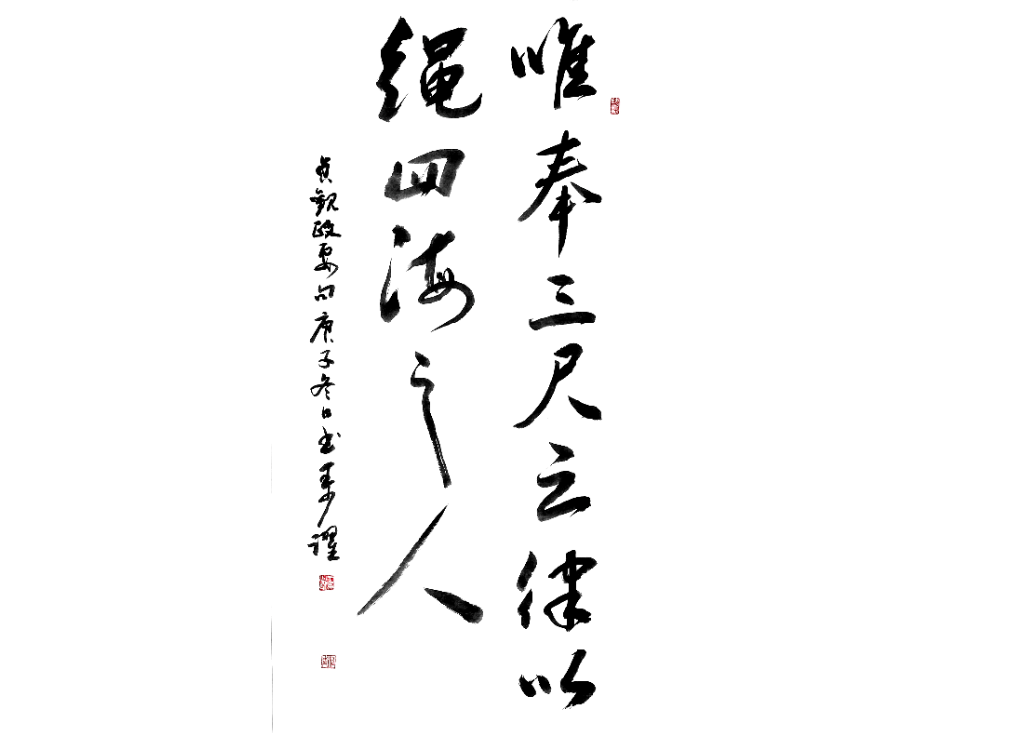 唯奉三尺之律以
绳四海之人
贞观政要句庚子冬日书